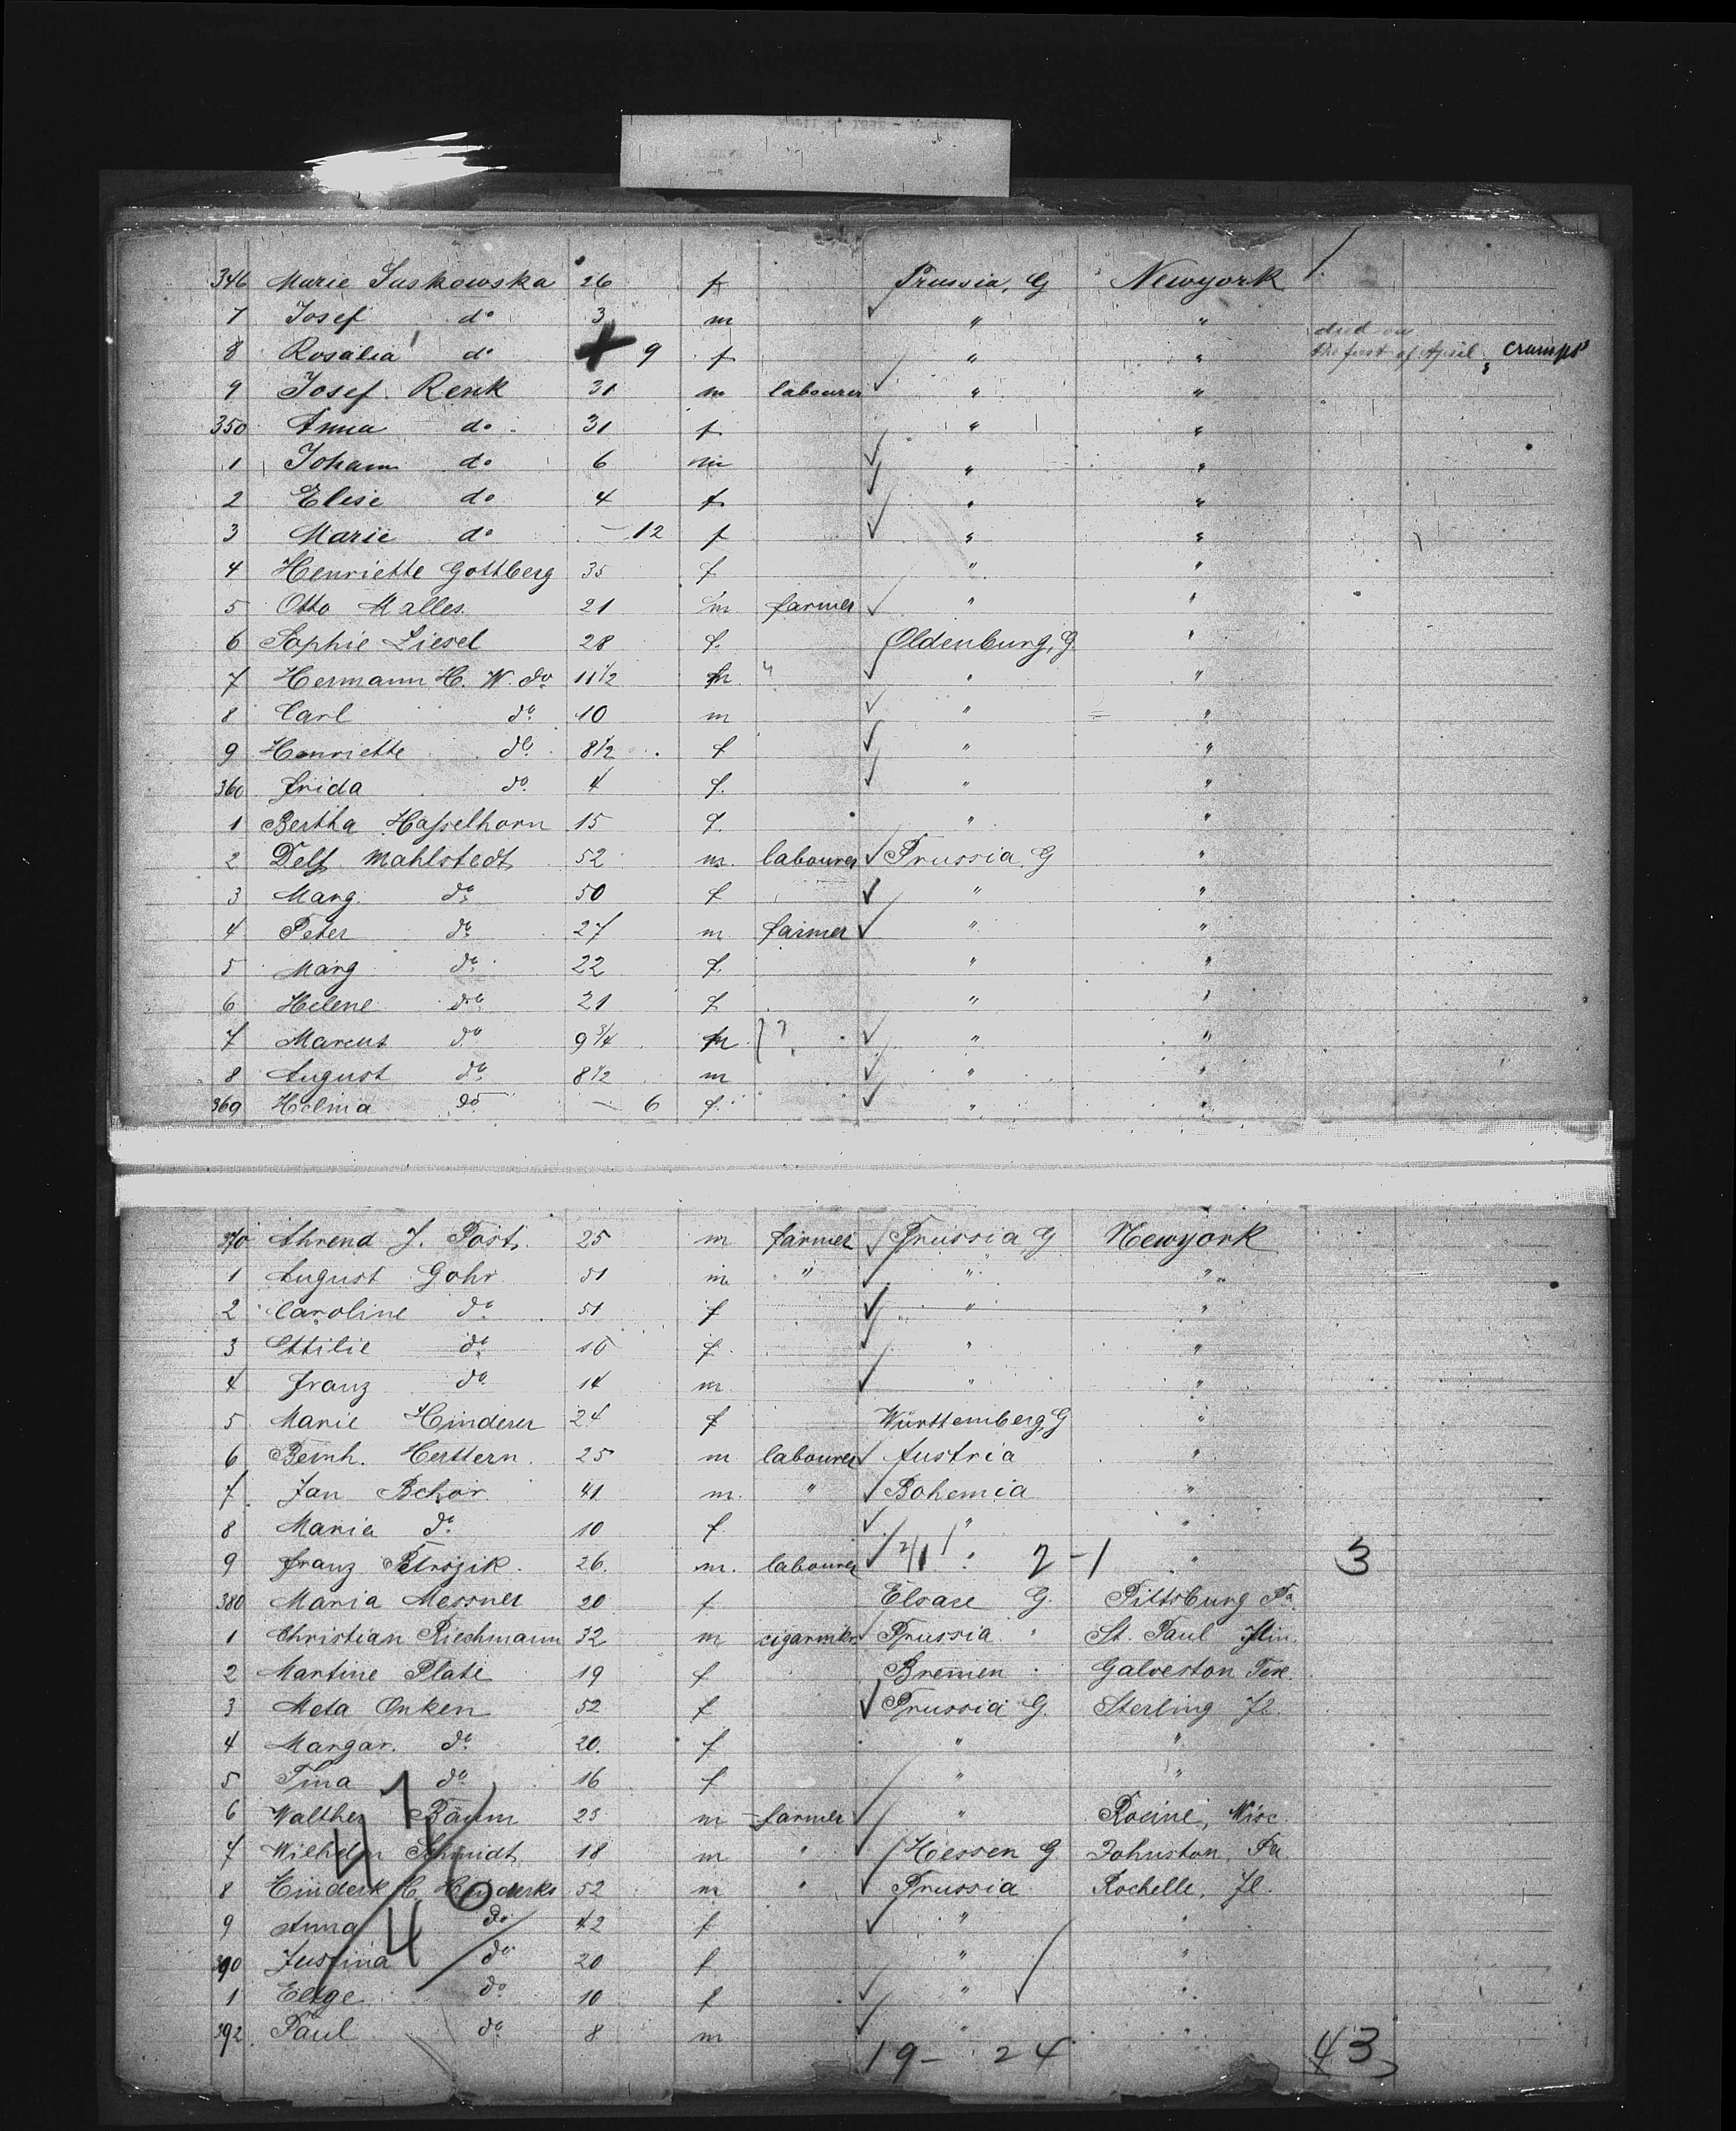 346 Marie Suskowska 26 f Prussia, G Newyork
7 Josef do 3 m " "
died on
8 Rosalia do 9 f " " the first of April, cramps
9 Josef Renk 31 m labourer " "
350 Anna do 31 f " "
1 Johann do 6 m " "
2 Elise do 4 f " "
3 Marie do - 12 f " "
4 Henriette Gottberg 35 f " "
5 Otto Malles 21 m farmer " "
6 Sophie Liesel 28 f. Oldenburg, G. "
7 Hermann H. W. do 11 1/2 m. " " "
8 Carl do 10 m " "
9 Henriette do 8 1/2 f " "
360 Frida do 4 f. " "
1 Bertha Hasselhorn 15 f. " "
2 Delf Mahlstedt 52 m. labourer Prussia, G "
3 Marg. do 50 f " "
4 Peter do 27 m farmer " "
5 Marg do 22 f. " "
6 Helene do 21 f " "
7 Marcus do 9 3/4 m ? " "
8 August do 8 1/2 m " "
369 Helma do - 6 f. " "
370 Ahrend J. Post. 25 m farmer Prussia G Newyork
1 August Gohr 51 m " " "
2 Caroline do 51 f " "
3 Ottilie do f. " "
4 Franz do 14 m " "
5 Marie Hinderer 24 f Württemberg, G "
6 Bernh. Herttern. 25 m labourer Austria "
7 Jan Bchor. 41 m. " Bohemia "
8 Maria do 10 f. " "
9 Franz Petrozik. 26. m. labourer 2/1 " 2-1 " 3
380 Maria Messner 20 f Elsase G. Pittsburg Pa.
1 Christian Rieshmann 32 m cigarmkr. Prussia " St. Paul Min.
2 Martine Plate 19 f Bremen " Galveston Tex.
3 Meta Onken 52 f Prussia G. Sterling Il.
4 Margar. do 20. f " "
5 Tina do 16 f " "
6 Walther Baum 23 m farmer " Racine, Wisc.
7 Wilhelm Schmidt 18 m " Hessen G Johnston, Pa.
8 Hinderk H. Hinderks 52 m " Prussia Rochelle, Il.
9 Anna do 42 f " "
390 Justina do 20 f " "
1 Eltge do 10 f " "
392 Paul do 8 m " "
19 - 24 43